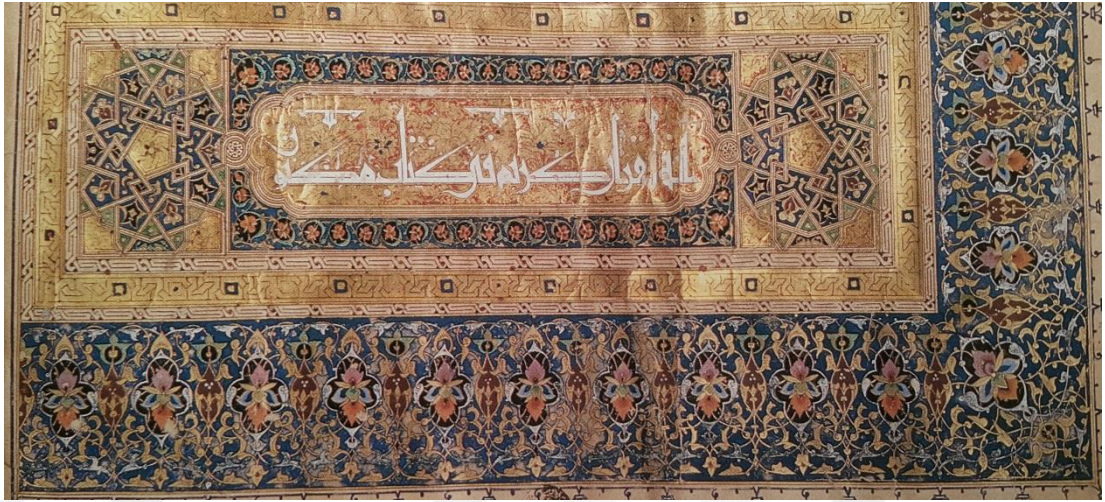 انه لقران كريم في كتاب مكنون